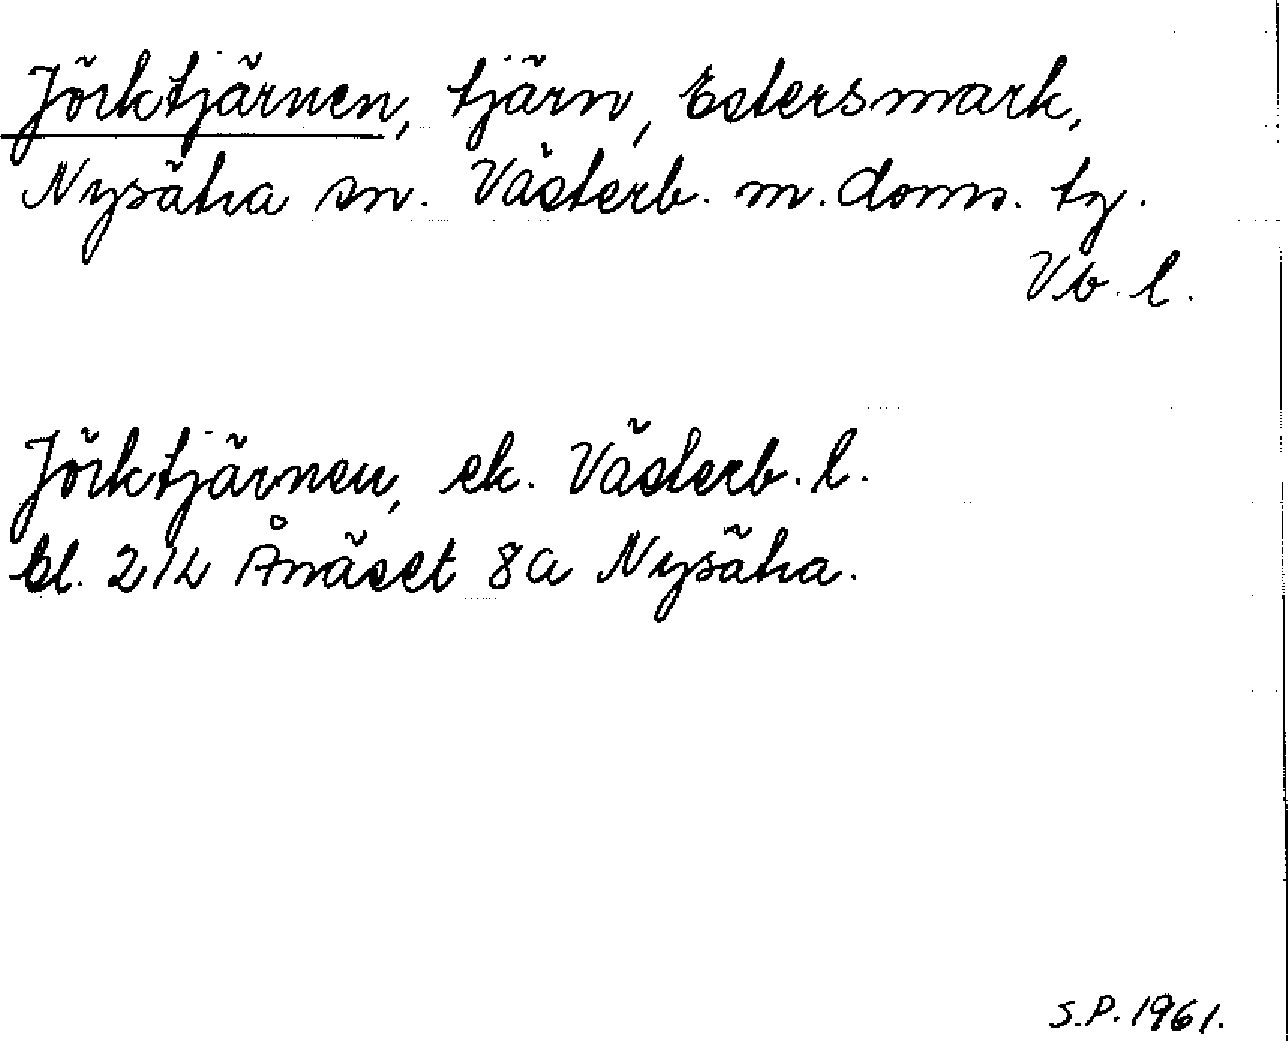 Jörktjärnen, tjärn, Estersmark,
Nysätra sn. Västerb. m. doms. tg.
Vb. l.
Jörktjärnen, ek. Västerb. l.
bl. 21L Ånäset 8a Nysätra.
S.P. 1961.